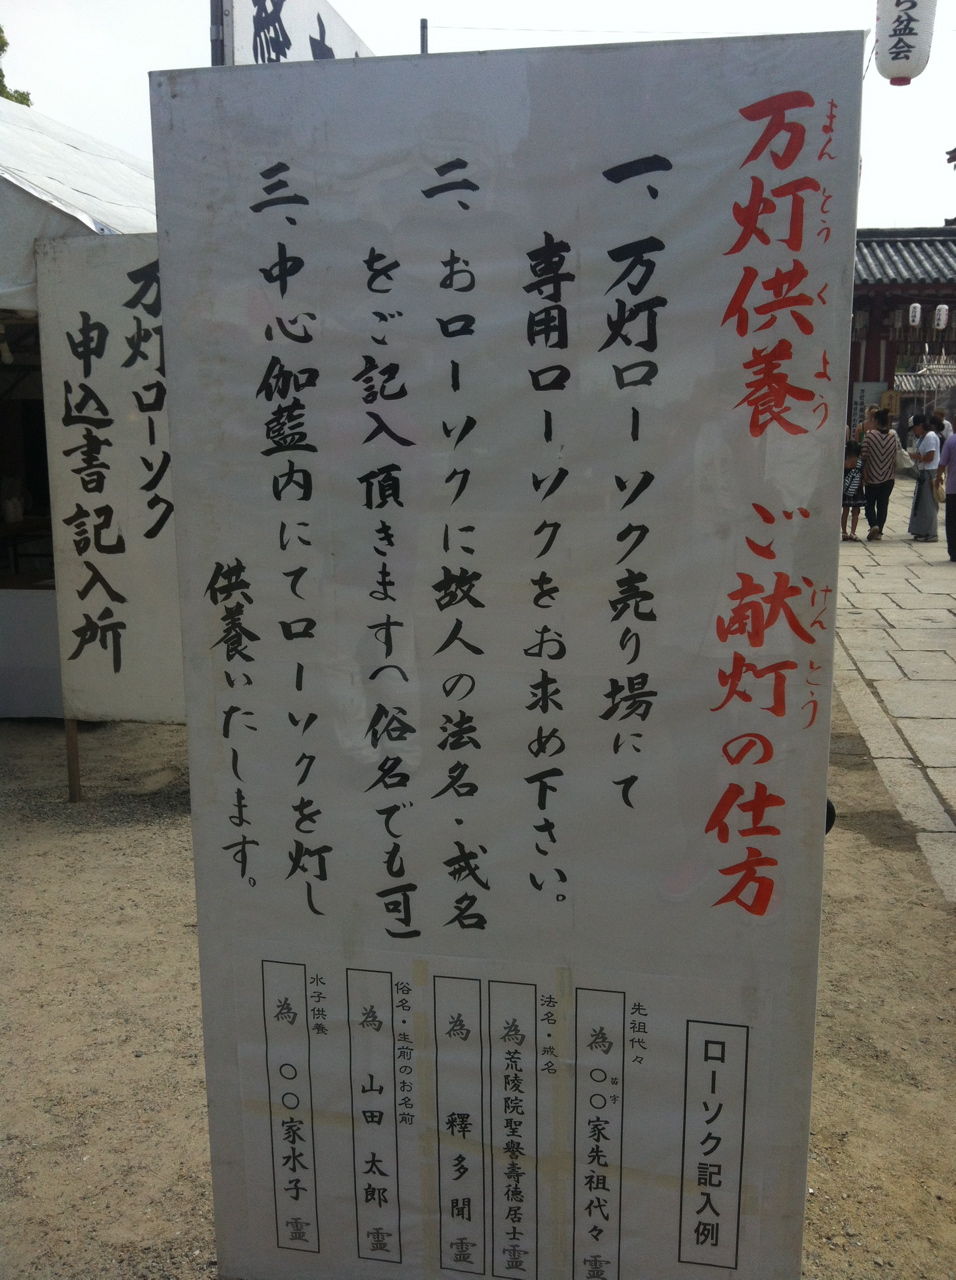 万灯供養 ご献灯の仕方
まんとうくよう けんとう
一、万灯ローソク売り場にて
専用ローソクをお求め下さい。
二、おローソクに故人の法名・戒名
をご記入頂きますへ俗名でも可
三、中心伽藍内にてローソクを灯し
供養いたします。
ローソク記入例
先祖代々
苗字
為 〇〇家先祖代々 霊
法名・戒名
為 荒陵院聖誉壽徳居士 霊
為 釋多聞 霊
俗名・生前のお名前
為 山田太郎 霊
水子供養
為 〇〇家水子 霊
万灯ローソク
申込書記入所
盆会